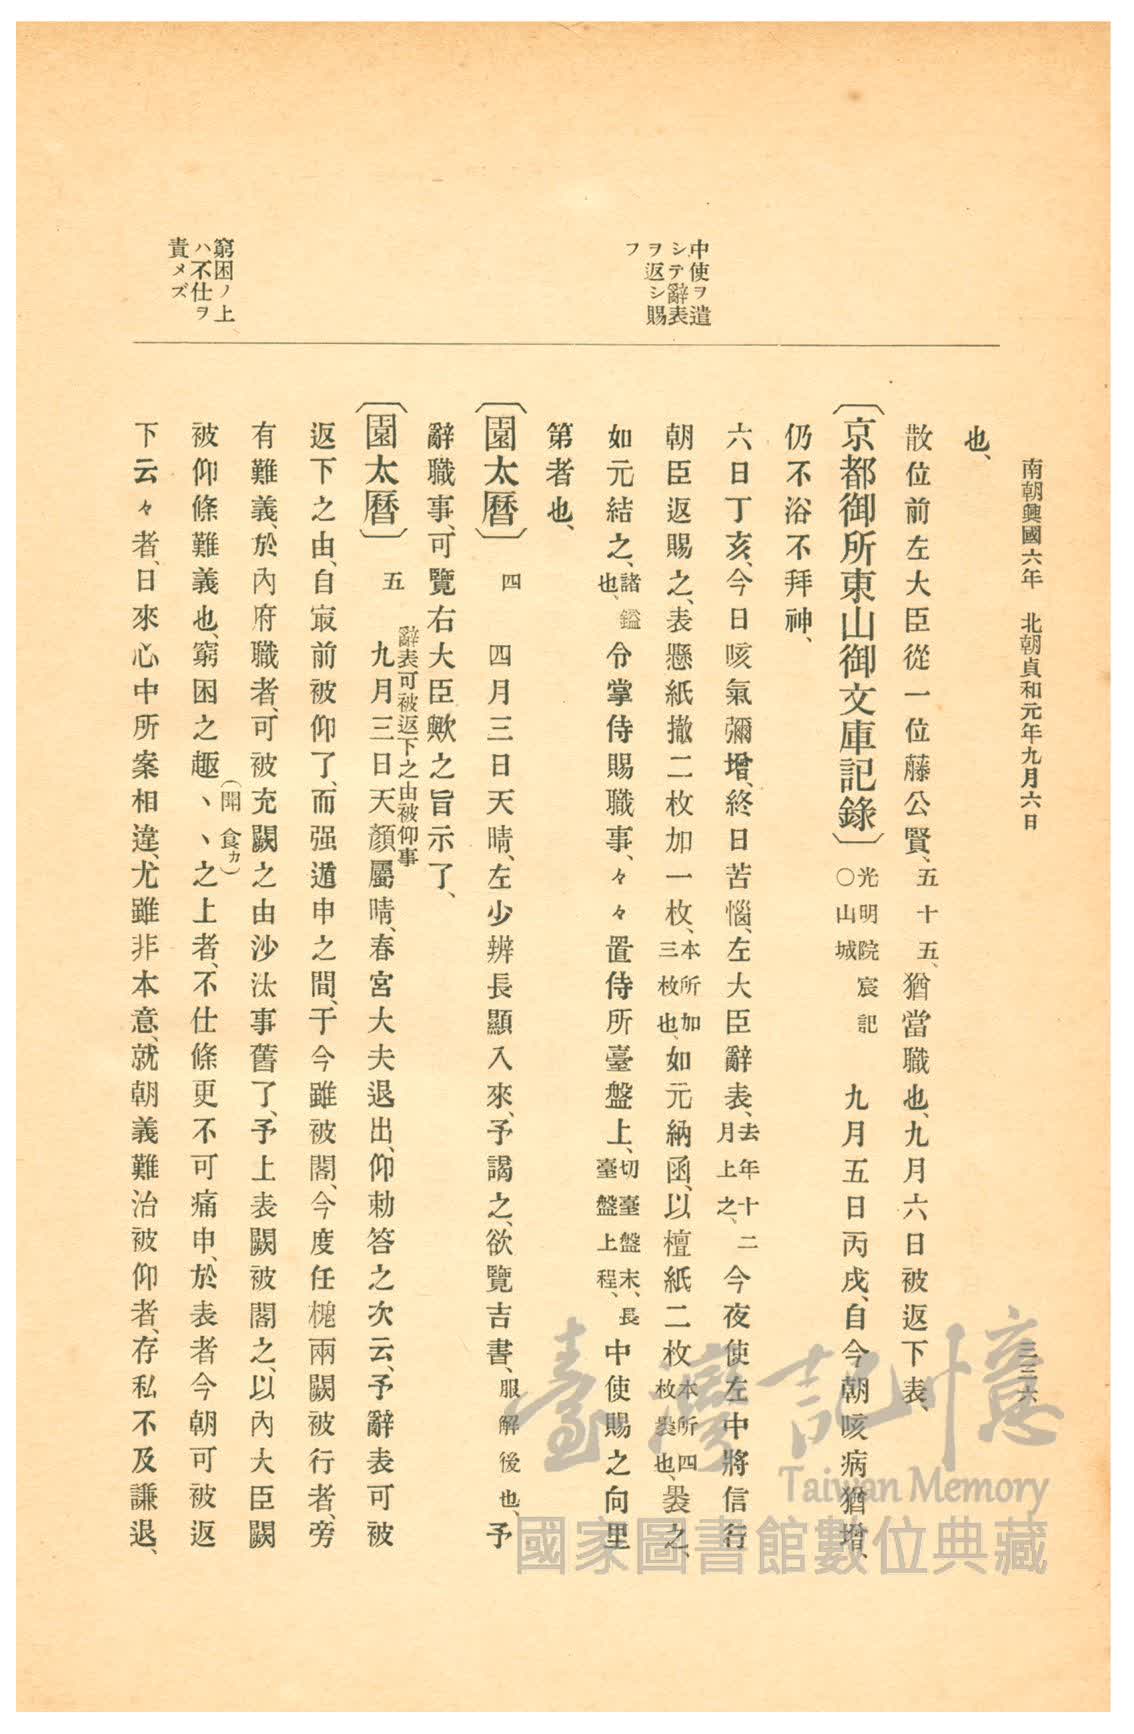 南朝興國六年　北朝貞和元年九月六日
三三六
中使ヲ遣
シテ辭表
ヲ返シ賜
フ
窮困ノ上
ハ不仕ヲ
責メズ
也、
散位前左大臣從一位藤公賢、五十五、猶當職也、九月六日被返下表、
〔京都御所東山御文庫記錄〕光明院宸記〇山城　九月五日丙戌、自今朝咳病猶增、
仍不浴不拜神、
六日丁亥、今日咳氣彌增、終日苦惱、左大臣辭表、去年十二月上之、今夜使左中將信行
朝臣返賜之、表懸紙撤二枚加一枚、本所加三枚也、如元納函、以檀紙二枚本所四枚裹也、裹之、
如元結之、諸鎰也、令掌侍賜職事、々々置侍所臺盤上、切臺盤末、長臺盤上程、中使賜之向里
第者也、
〔園太曆〕四　四月三日天晴、左少辨長顯入來、予謁之、欲覽吉書、服解後也、予
辭職事、可覽右大臣歟之旨示了、
〔園太曆〕五　九月三日天顏屬晴、春宮大夫退出、仰勅答之次云、予辭表可被
辭表可被返下之由被仰事
返下之由、自㝡前被仰了、而强遁申之間、于今雖被閣、今度任槐兩闕被行者、旁
有難義、於內府職者、可被充闕之由沙汰事舊了、予上表闕被閣之、以內大臣闕
被仰條難義也、窮困之趣丶丶之上者、不仕條更不可痛申、於表者今朝可被返
（開食カ）
下云々者、日來心中所案相違、尤雖非本意、就朝義難治被仰者、存私不及謙退、
臺灣記憶
Taiwan Memory
國家圖書館數位典藏